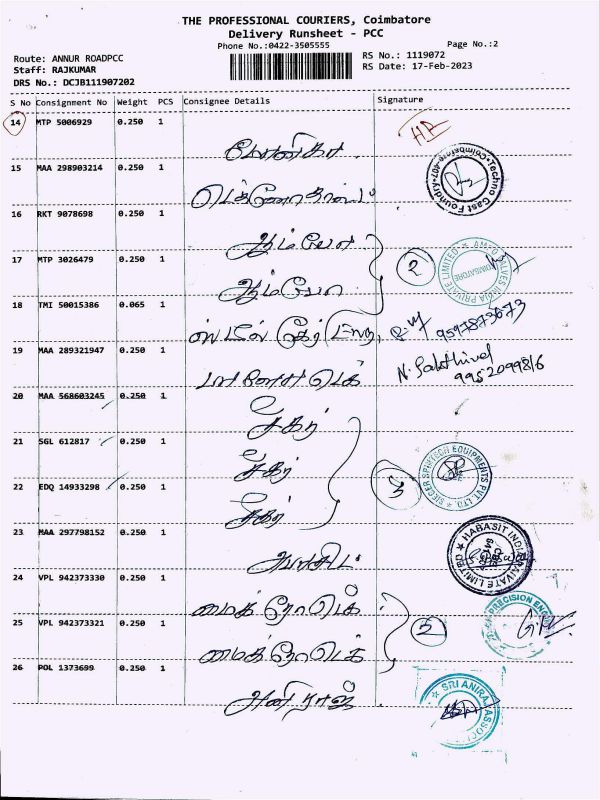 THE PROFESSIONAL COURIERS, Coimbatore
Delivery Runsheet - PCC
Phone No.:0422-3505555
Page No.:2
Route: ANNUR ROADPCC
Staff: RAJKUMAR
DRS No.: DCJB111907202
RS No.: 1119072
RS Date: 17-Feb-2023
S No Consignment No Weight PCS Consignee Details Signature
14 MTP 5006929 0.250 1 HR
மோனிகா
15 MAA 298903214 0.250 1
Techno Cast Foundry Coimbatore
16 RKT 9078698 0.250 1
ஆம்வோ
17 MTP 3026479 0.250 1 2
VALVES INDIA PRIVATE LIMITED COIMBATORE
ஆம்வோ
18 TMI 50015386 0.065 1
9597873673
19 MAA 289321947 0.250 1
N. Sakthivel
9952099816
20 MAA 568603245 0.250 1
சீகர்
21 SGL 612817 0.250 1
சீகர்
3
SIEGER SPINTECH EQUIPMENTS PVT. LTD.
22 EDQ 14933298 0.250 1
சீகர்
23 MAA 297798152 0.250 1
HABASIT INDIA PRIVATE LIMITED
24 VPL 942373330 0.250 1
மைக்ரோடெக்
25 VPL 942373321 0.250 1 2
PRECISION
மைக்ரோடெக்
26 POL 1373699 0.250 1
SRI ANIRAJ ASSOCIATES
அனிராஜ்